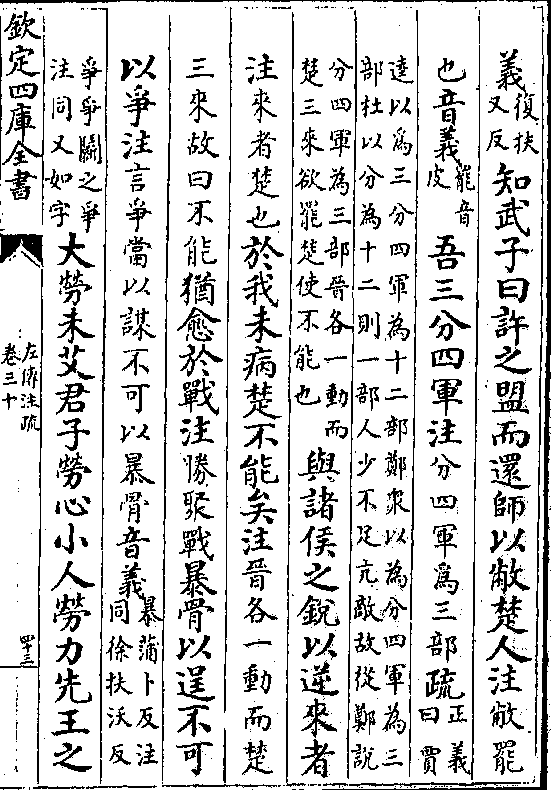 義復扶又反知武子曰許之盟而還師以敝楚人注敝罷
也音義罷音皮吾三分四軍注分四軍爲三部疏正義曰賈
逵以爲三分四軍為十二部鄭衆以為分四軍為三
部杜以分為十二則一部人少不足亢敵故從鄭說
分四軍為三部晉各一動而
楚三來欲罷楚使不能也
與諸侯之銳以逆來者
注來者楚也於我未病楚不能矣注晉各一動而楚
三來故曰不能猶愈於戰注勝聚戰暴骨以逞不可
以爭注言爭當以謀不可以暴骨音義暴蒲卜反注同徐扶沃反
爭爭鬬之爭注同又如字大勞未艾君子勞心小人勞力先王之
欽定四庫全書
左傳注疏
卷三十
四十三